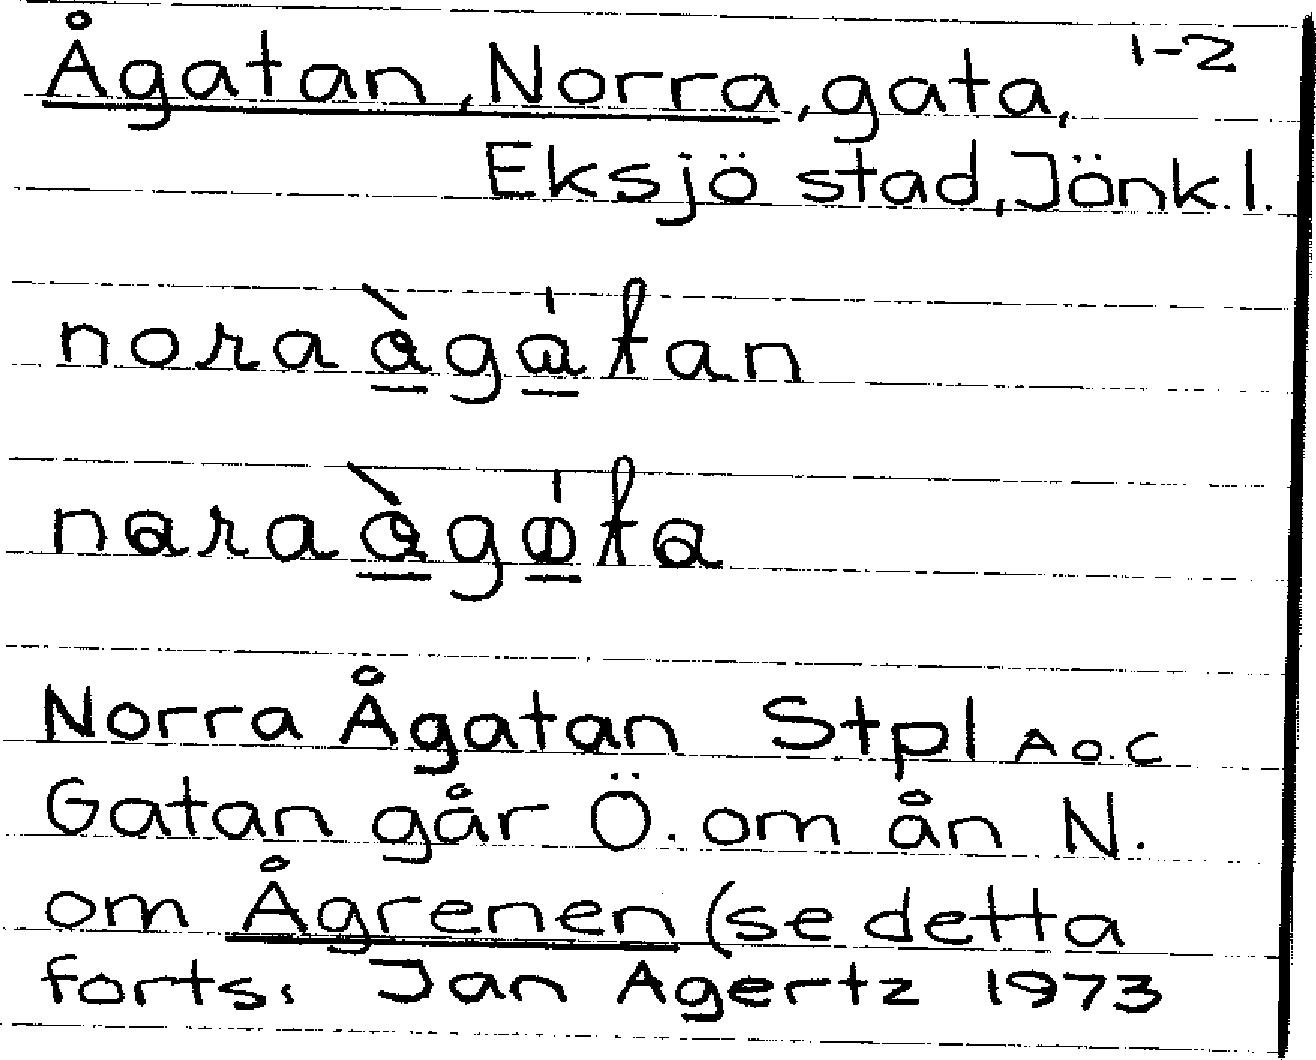 Ågatan, Norra, gata, 1-2
Eksjö stad, Jönk.l.
nora ågatan
nara ågata
Norra Ågatan Stpl A o. C
Gatan går Ö. om ån N.
om Ågrenen (se detta
forts. Jan Agertz 1973